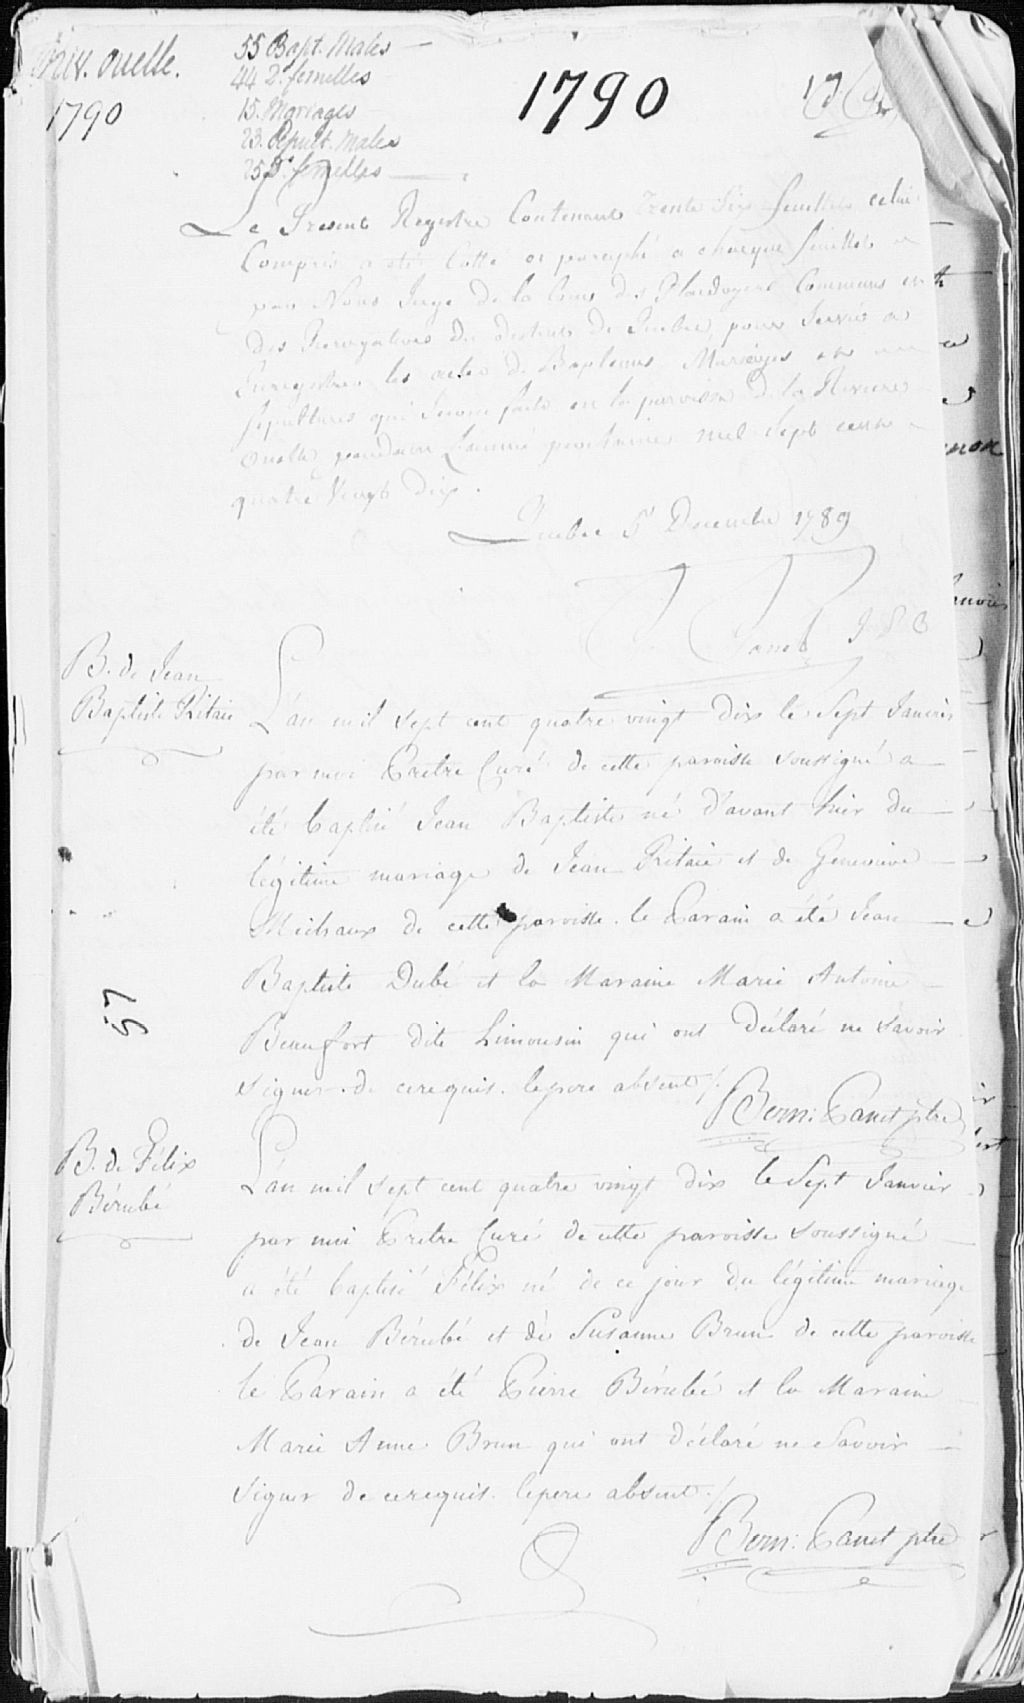 Riv. Ouelle.
1790
55 Bapt. Males
44 D.º femelles
15. Mariages
23. Sepult. Males
25 D.º femelles
1790
Le Present Registre Contenant Trente Six feuillets celui
Compris a été Cotté et paraphé a chaque feuillet
par Nous Juge de la Cour des Plaidoyers Communs
Des Prerogatives du district de Quebec pour Servir a
Enregistrer les actes de Baptemes Mariages et
Sepultures qui Seront faits en la paroisse de la Riviere
Ouelle pendant L'année prochaine mil Sept cent
quatre Vingt Dix.
Quebec 5 Decembre 1789
Panet
B. de Jean
Baptiste Pitaie
L'an mil sept cent quatre vingt dix le Sept Janvier
par moi Prêtre Curé de cette paroisse soussigné a
été baptisé Jean Baptiste né d'avant hier du
légitime mariage de Jean Pitaie et de Genevieve
Michaux de cette paroisse. le Parain a été Jean
Baptiste Dubé et la Maraine Marie Antoine
Beaufort dite Limousin qui ont Déclaré ne savoir
signer. de cerequis. lepere absent /.
Bern: Panet ptre
57
B. de Félix
Bérubé
L'an mil sept cent quatre vingt dix le Sept Janvier
par moi Prêtre Curé de cette paroisse soussigné
a été baptisé Félix né de ce jour du légitime mariage
de Jean Bérubé et de Susanne Brun de cette paroisse
le Parain a été Pierre Bérubé et la Maraine
Marie Anne Brun qui ont déclaré ne Savoir
signer de cerequis. lepere absent. /
Bern: Panet ptre